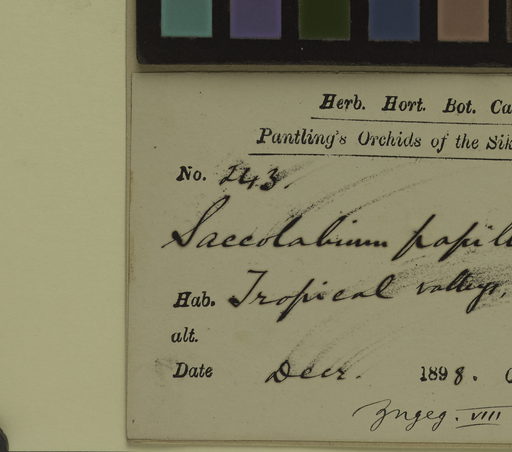 Herb. Hort. Bot. Ca
Pantling's Orchids of the Sik
No. 243.
Saccolabium papill
Hab. Tropical valleys,
alt.
Date Decr. 1898.
Zngeg. VIII